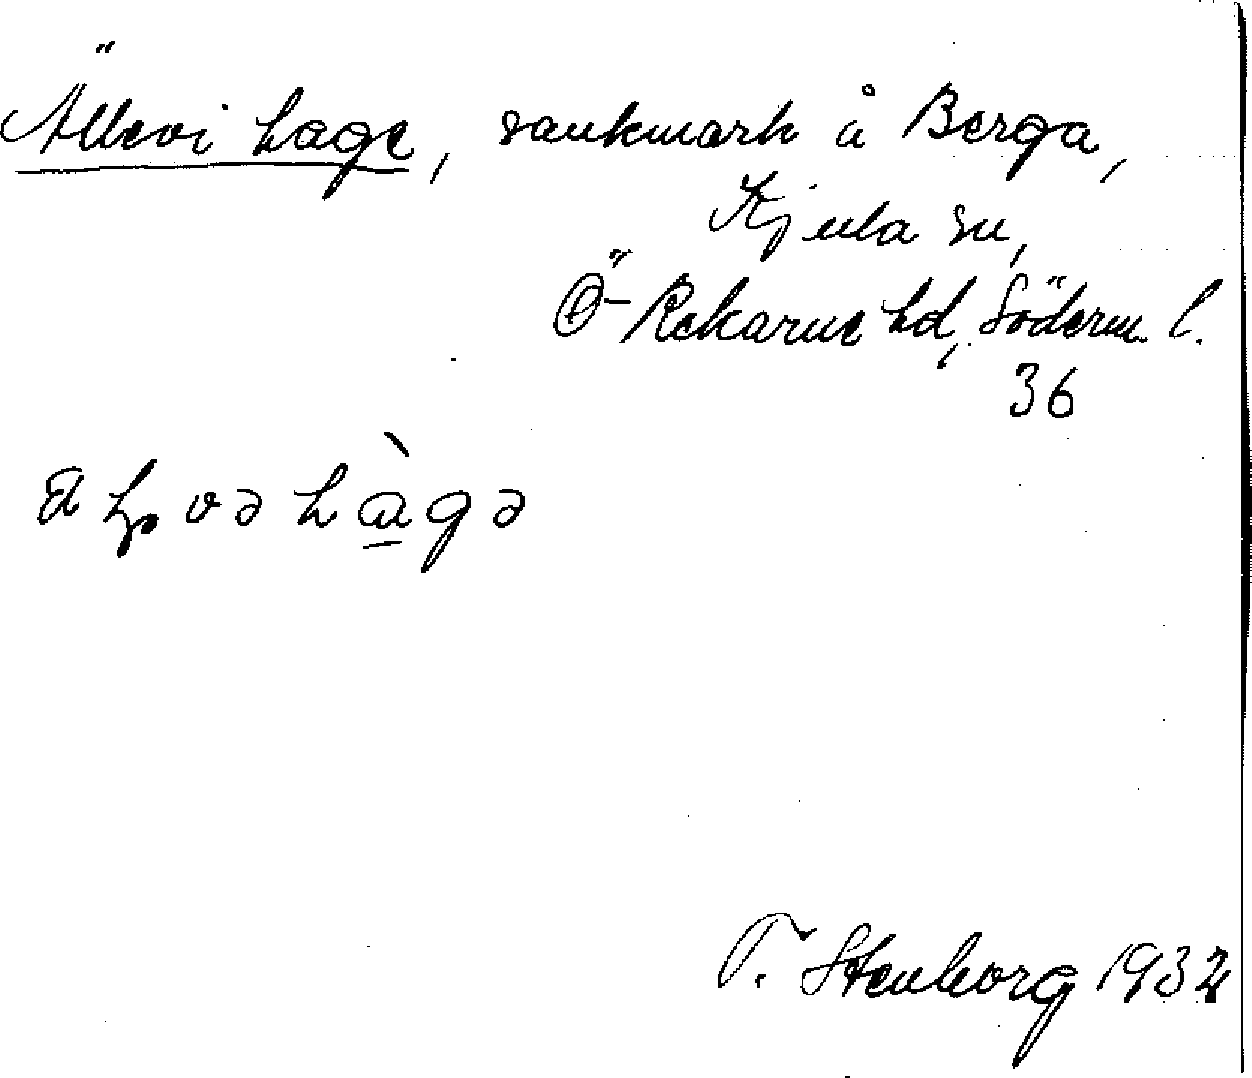 Ällevi hage, sankmark å Berga,
Kjula sn,
Ö-Rekarne hd, Söderm. l.
36
T. Stenborg 1932